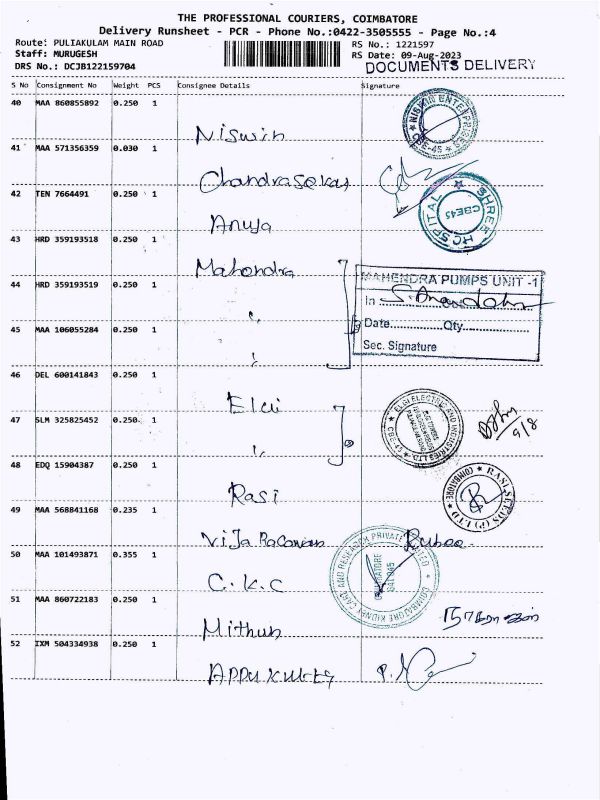 THE PROFESSIONAL COURIERS, COIMBATORE
Delivery Runsheet - PCR - Phone No.:0422-3505555 - Page No.:4
Route: PULIAKULAM MAIN ROAD RS No.: 1221597
Staff: MURUGESH RS Date: 09-Aug-2023
DRS No.: DCJB122159704 DOCUMENTS DELIVERY
S No Consignment No Weight PCS Consignee Details Signature
40 MAA 860855892 0.250 1 Niswin
NISWIN ENTERPRISES
CBE-45
41 MAA 571356359 0.030 1 Chandrasekar
42 TEN 7664491 0.250 1 Anuja
SHREE HOSPITAL
CBE45
43 HRD 359193518 0.250 1 Mahendra
44 HRD 359193519 0.250 1 "
45 MAA 106055284 0.250 1 "
MAHENDRA PUMPS UNIT -1
In
Date..............Qty.................
Sec. Signature
46 DEL 600141843 0.250 1 Elgi
47 SLM 325825452 0.250 1 "
ELGI ELECTRIC AND INDUSTRIES LTD
CBE-45
9/8
48 EDQ 15904387 0.250 1 Rasi
RASI SEEDS (P) LTD
COIMBATORE
49 MAA 568841168 0.235 1
50 MAA 101493871 0.355 1 C.K.C
COIMBATORE KIDNEY CARE AND RESEARCH PRIVATE LIMITED
COIMBATORE
641 045
51 MAA 860722183 0.250 1 Mithun
52 IXM 504334938 0.250 1